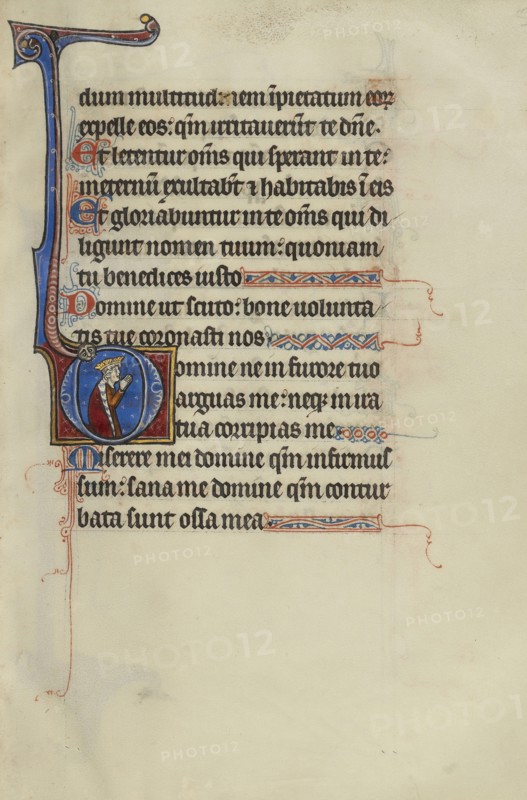 dum multitud:inem īpietatum eoꝝ
expelle eos: qm̄ irritauerūt te dn̄e.
Et letentur om̄s qui sperant in te:
in eternū exultabt̄ ⁊ habitabis ī eis
Et gloriabuntur in te om̄s qui di
ligunt nomen tuum: quoniam
tu benedices iusto
Domine ut scuto: bone uolunta
tis tue coronasti nos
Domine ne in furore tuo
arguas me: neqꝫ in ira
tua corripias me
Miserere mei domine qm̄ infirmus
sum: sana me domine qm̄ contur
bata sunt ossa mea
PHOTO12